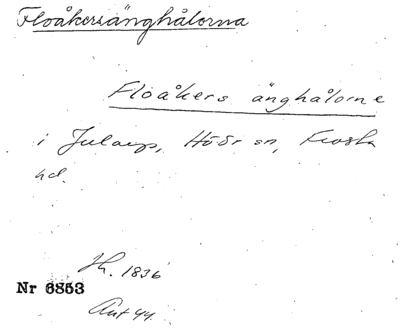 Floåkersänghålorna
Floåkers änghålorne
i Julaup, Höör sn, Frosta
hd.
H. 1836
Nr 6853
Ant 44.